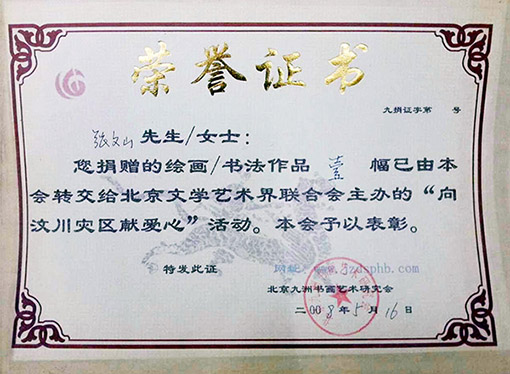 荣誉证书
九捐证字第 号
张文山 先生/女士：
您捐赠的绘画/书法作品 壹 幅已由本
会转交给北京文学艺术界联合会主办的“向
汶川灾区献爱心”活动。本会予以表彰。
特发此证
北京九洲书画艺术研究会
二00 8 年 5 月 16 日